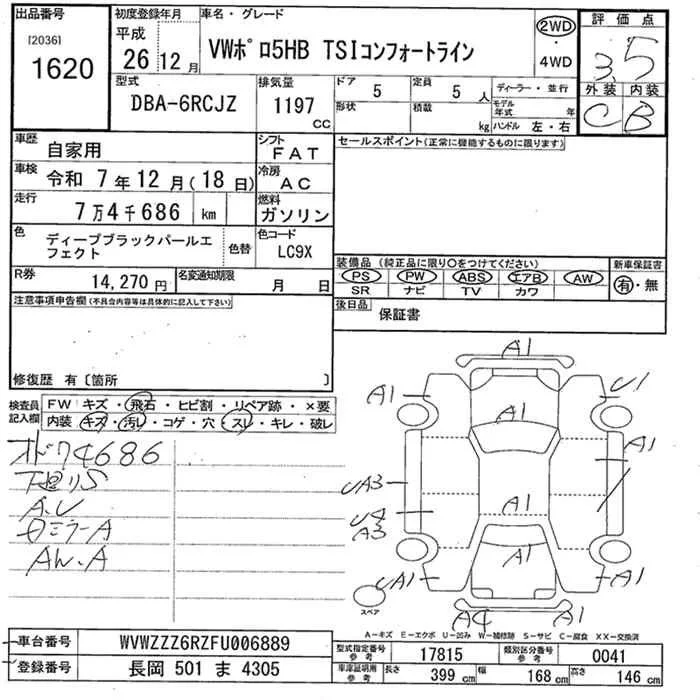 出品番号
[2036]
1620
初度登録年月
平成
26年12月
車名・グレード
VWポロ5HB TSIコンフォートライン
2WD
・
4WD
評価点
3.5
外装 内装
C B
型式
DBA-6RCJZ
排気量
1197
cc
ドア 5
形状
定員 5 人
積載 kg
ディーラー・並行
モデル年式 年
ハンドル 左・右
車歴
自家用
シフト
FAT
セールスポイント(正常に機能するものに限ります)
車検
令和 7年12月(18日)
冷房
AC
走行
7万4千686 km
燃料
ガソリン
色
ディープブラックパールエフェクト
色替
色コード
LC9X
装備品 (純正品に限り〇をつけてください)
PS PW ABS エアB AW
SR ナビ TV カワ
新車保証書
有・無
R券
14,270円
名変通知期限
月 日
後日品
保証書
注意事項申告欄(不具合内容等は具体的に記入して下さい)
修復歴 有〔箇所 〕
検査員
記入欄
FW キズ・飛石・ヒビ割・リペア跡・×要
内装 キズ・汚レ・コゲ・穴・スレ・キレ・破レ
オド74686
A.U
ロミラーA
AW.A
A1
A1
U1
A1
A1
UA3
U2
A3
A1
A1
UA1
A1
A4
A1
スペア
A-キズ E-エクボ U-凹み W-補修跡 S-サビ C-腐食 XX-交換済
車台番号
WVWZZZ6RZFU006889
登録番号
長岡 501 ま 4305
型式指定番号
参考
17815
類別区分番号
参考
0041
車庫証明用
参考
長さ 399 cm
幅 168 cm
高さ 146 cm